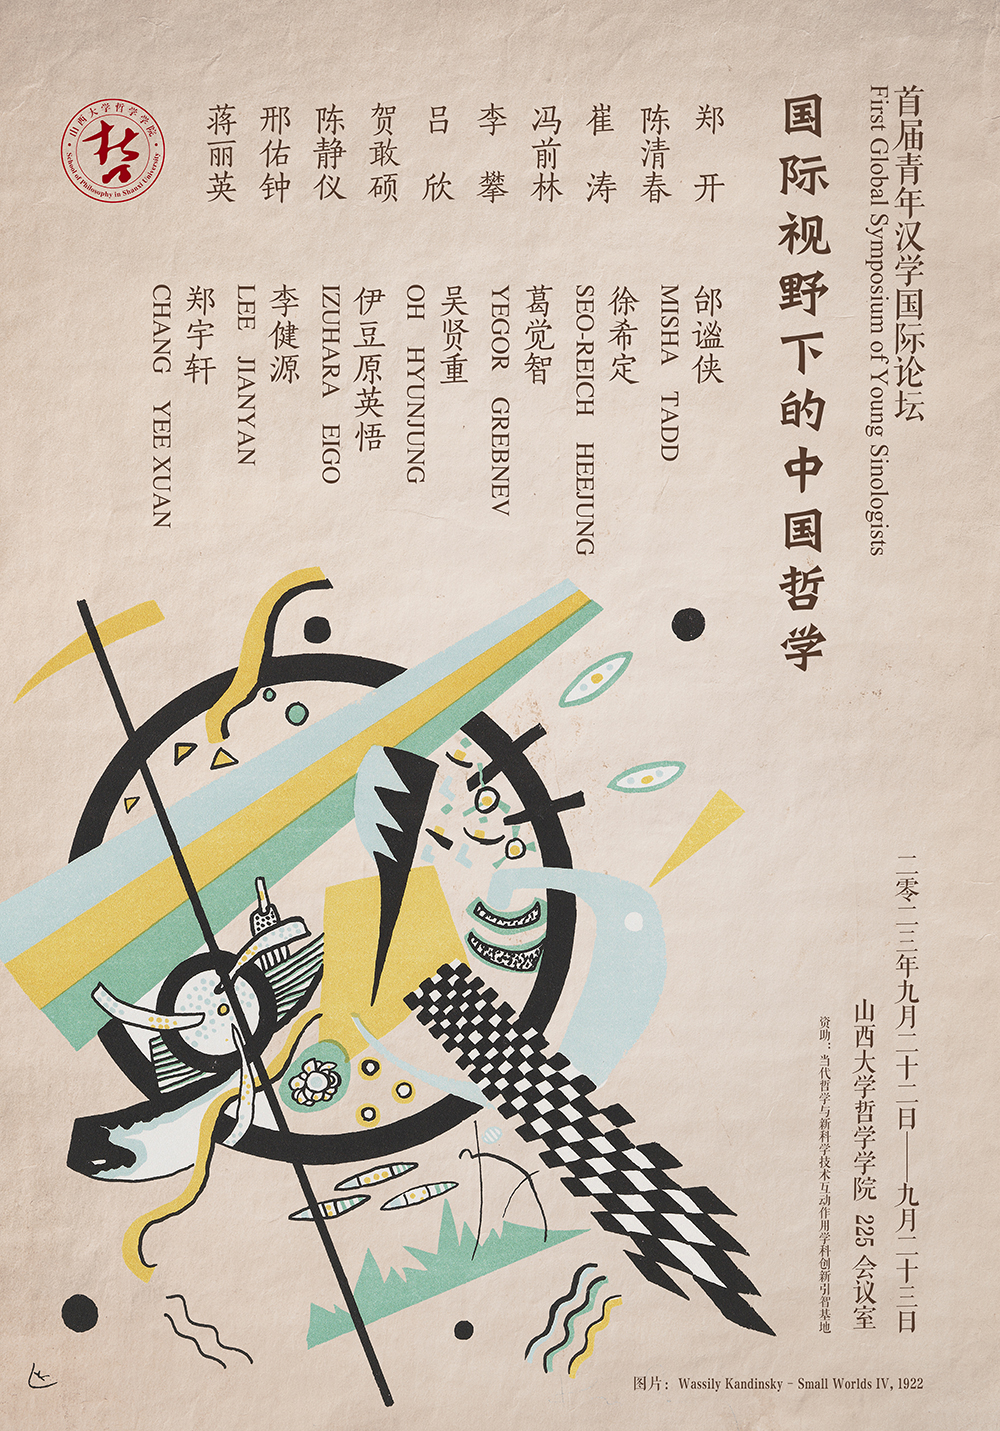 首届青年汉学国际论坛
First Global Symposium of Young Sinologists
国际视野下的中国哲学
郑开
陈清春
崔涛
冯前林
李攀
吕欣
贺敢硕
陈静仪
邢佑钟
蒋丽英
邰谧侠
MISHA TADD
徐希定
SEO-REICH HEEJUNG
葛觉智
YEGOR GREBNEV
吴贤重
OH HYUNJUNG
伊豆原英悟
IZUHARA EIGO
李健源
LEE JIANYAN
郑宇轩
CHANG YEE XUAN
山西大学哲学学院
School of Philosophy in Shanxi University
哲
二零二三年九月二十二日——九月二十三日
山西大学哲学学院 225 会议室
资助：当代哲学与新科学技术互动作用学科创新引智基地
图片：Wassily Kandinsky - Small Worlds IV, 1922